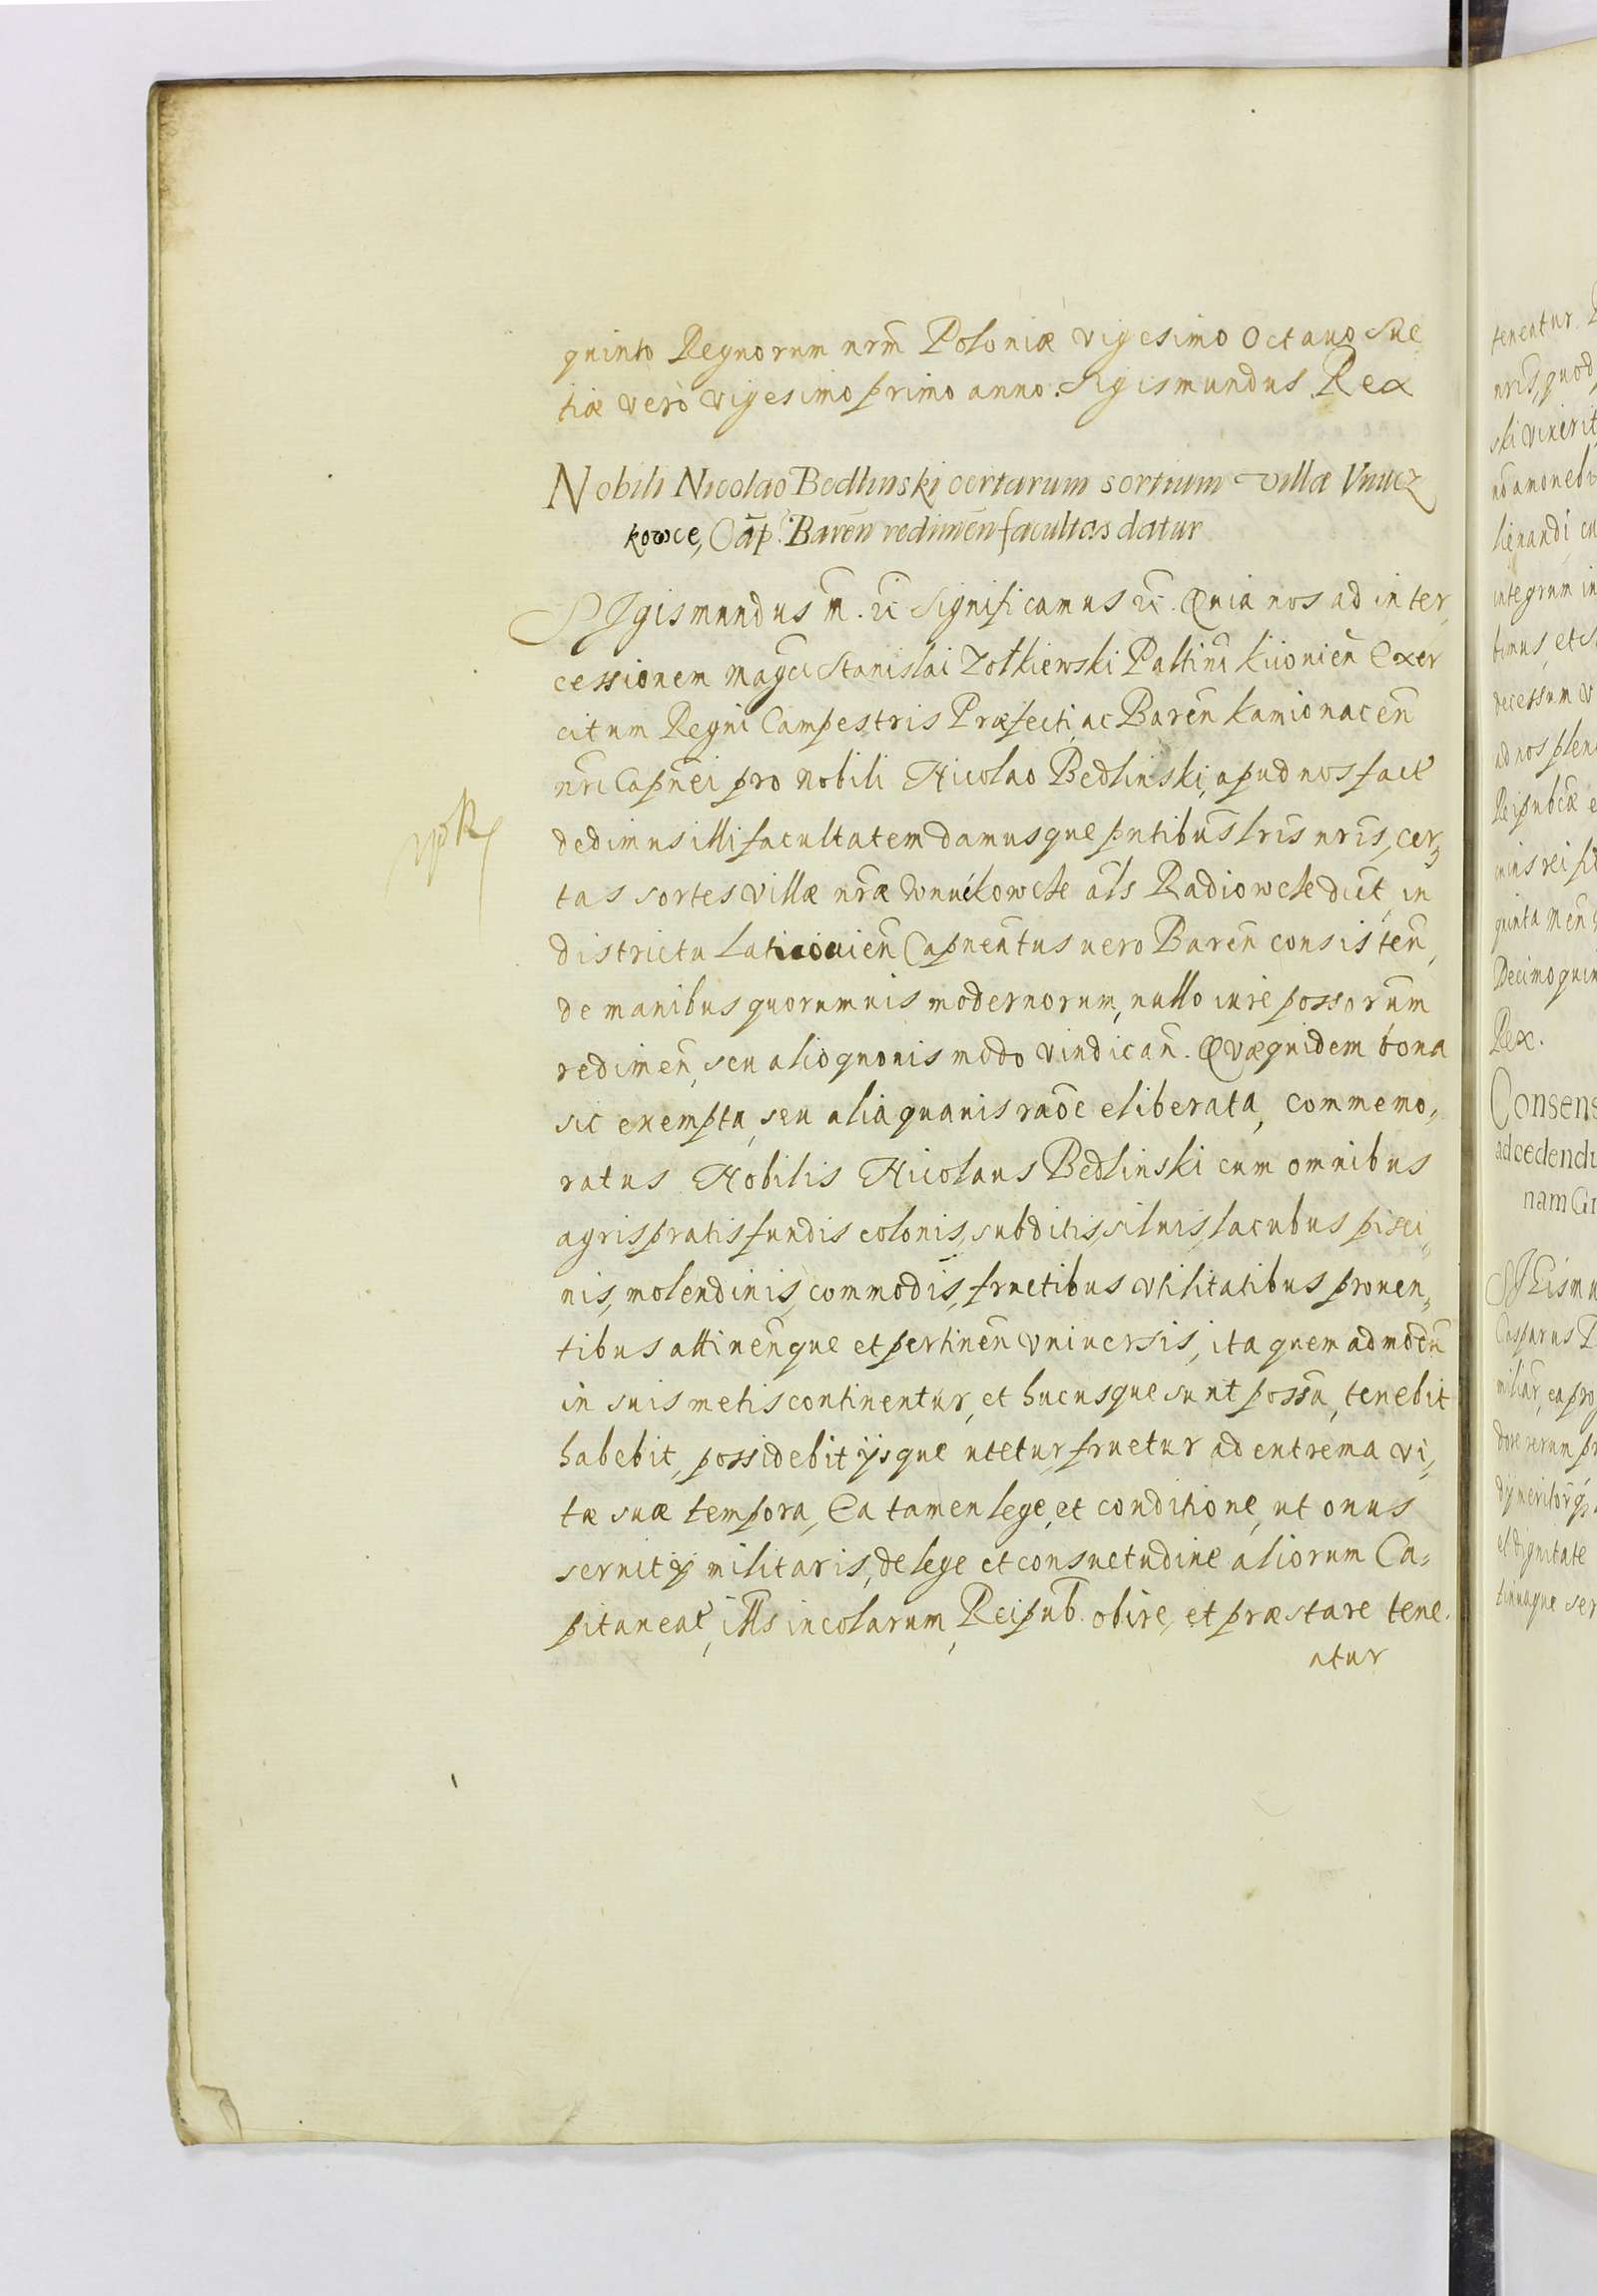 quinto Regnorum nrm̃ Poloniæ vigesimo Octauo Sue
tiæ verò vigesimo primo anno. Sigismundus Rex
Nobili Nicolao Bedlinski certarum sortium villæ Vnucz
kowce, Cap̃. Baren̄ redimen̄ facultas datur
SIgismundus m̃. ec̃ Significamus ec̃. Quia nos ad inter,
cessionem Magci Stanislai Zołkiewski Paltini Kiiouien̄ Exer
cituum Regni Campestris Præfecti, ac Baren̄ Kamionacen̄
nr̃i Capnei pro Nobili Nicolao Bedlinski, apud nos fact̃
dedimus illi facultatem damusque pn̄tibus l̃ris nr̃is, cer,
tas sortes villæ nr̃æ Wnukowcke al̃s Radiowcke dict̃, in
districtu Laticouien̄ Capneatus uero Baren̄ consisten̄,
de manibus quorumuis modernorum, nullo iure posso rum̃
redimen̄, seu alio quouis modo vindican̄. Quæquidem bona
sic exempta, seu alia quauis rao͠e eliberata, commemo,
ratus Nobilis Nicolaus Bedlinski cum omnibus
agris pratis fundis colonis, subditis, siluis, lacubus pisci,,
nis, molendinis, commodis, fructibus vtilitatibus prouen,,
tibus attinen̄que et pertinen̄ vniuersis, ita quem admodu͠
in suis metis continentur, et hucusque sunt possa͠, tenebit
habebit, possidebit ijsque utetur, fruetur ad extrema vi,
tæ suæ tempora, Ea tamen lege, et conditione, ut onus
seruitij militaris, de lege et consuetudine aliorum Ca,
pitaneat̃, ill̃s incolarum, Reipub̃. obire, et præstare tene.
atur
tenentur.
nris, quod
ski vixerit
lienandi cu
integrum in
bimus, et
decessum v
ad nos plen
Reipubcæ e
quinta Men̄
Decimo quin
Rex.
Consens
ad cedendu
nam Gr
SIgismu
Casparus
miliar̃, ea pro
et dignitate
tinuaque ser